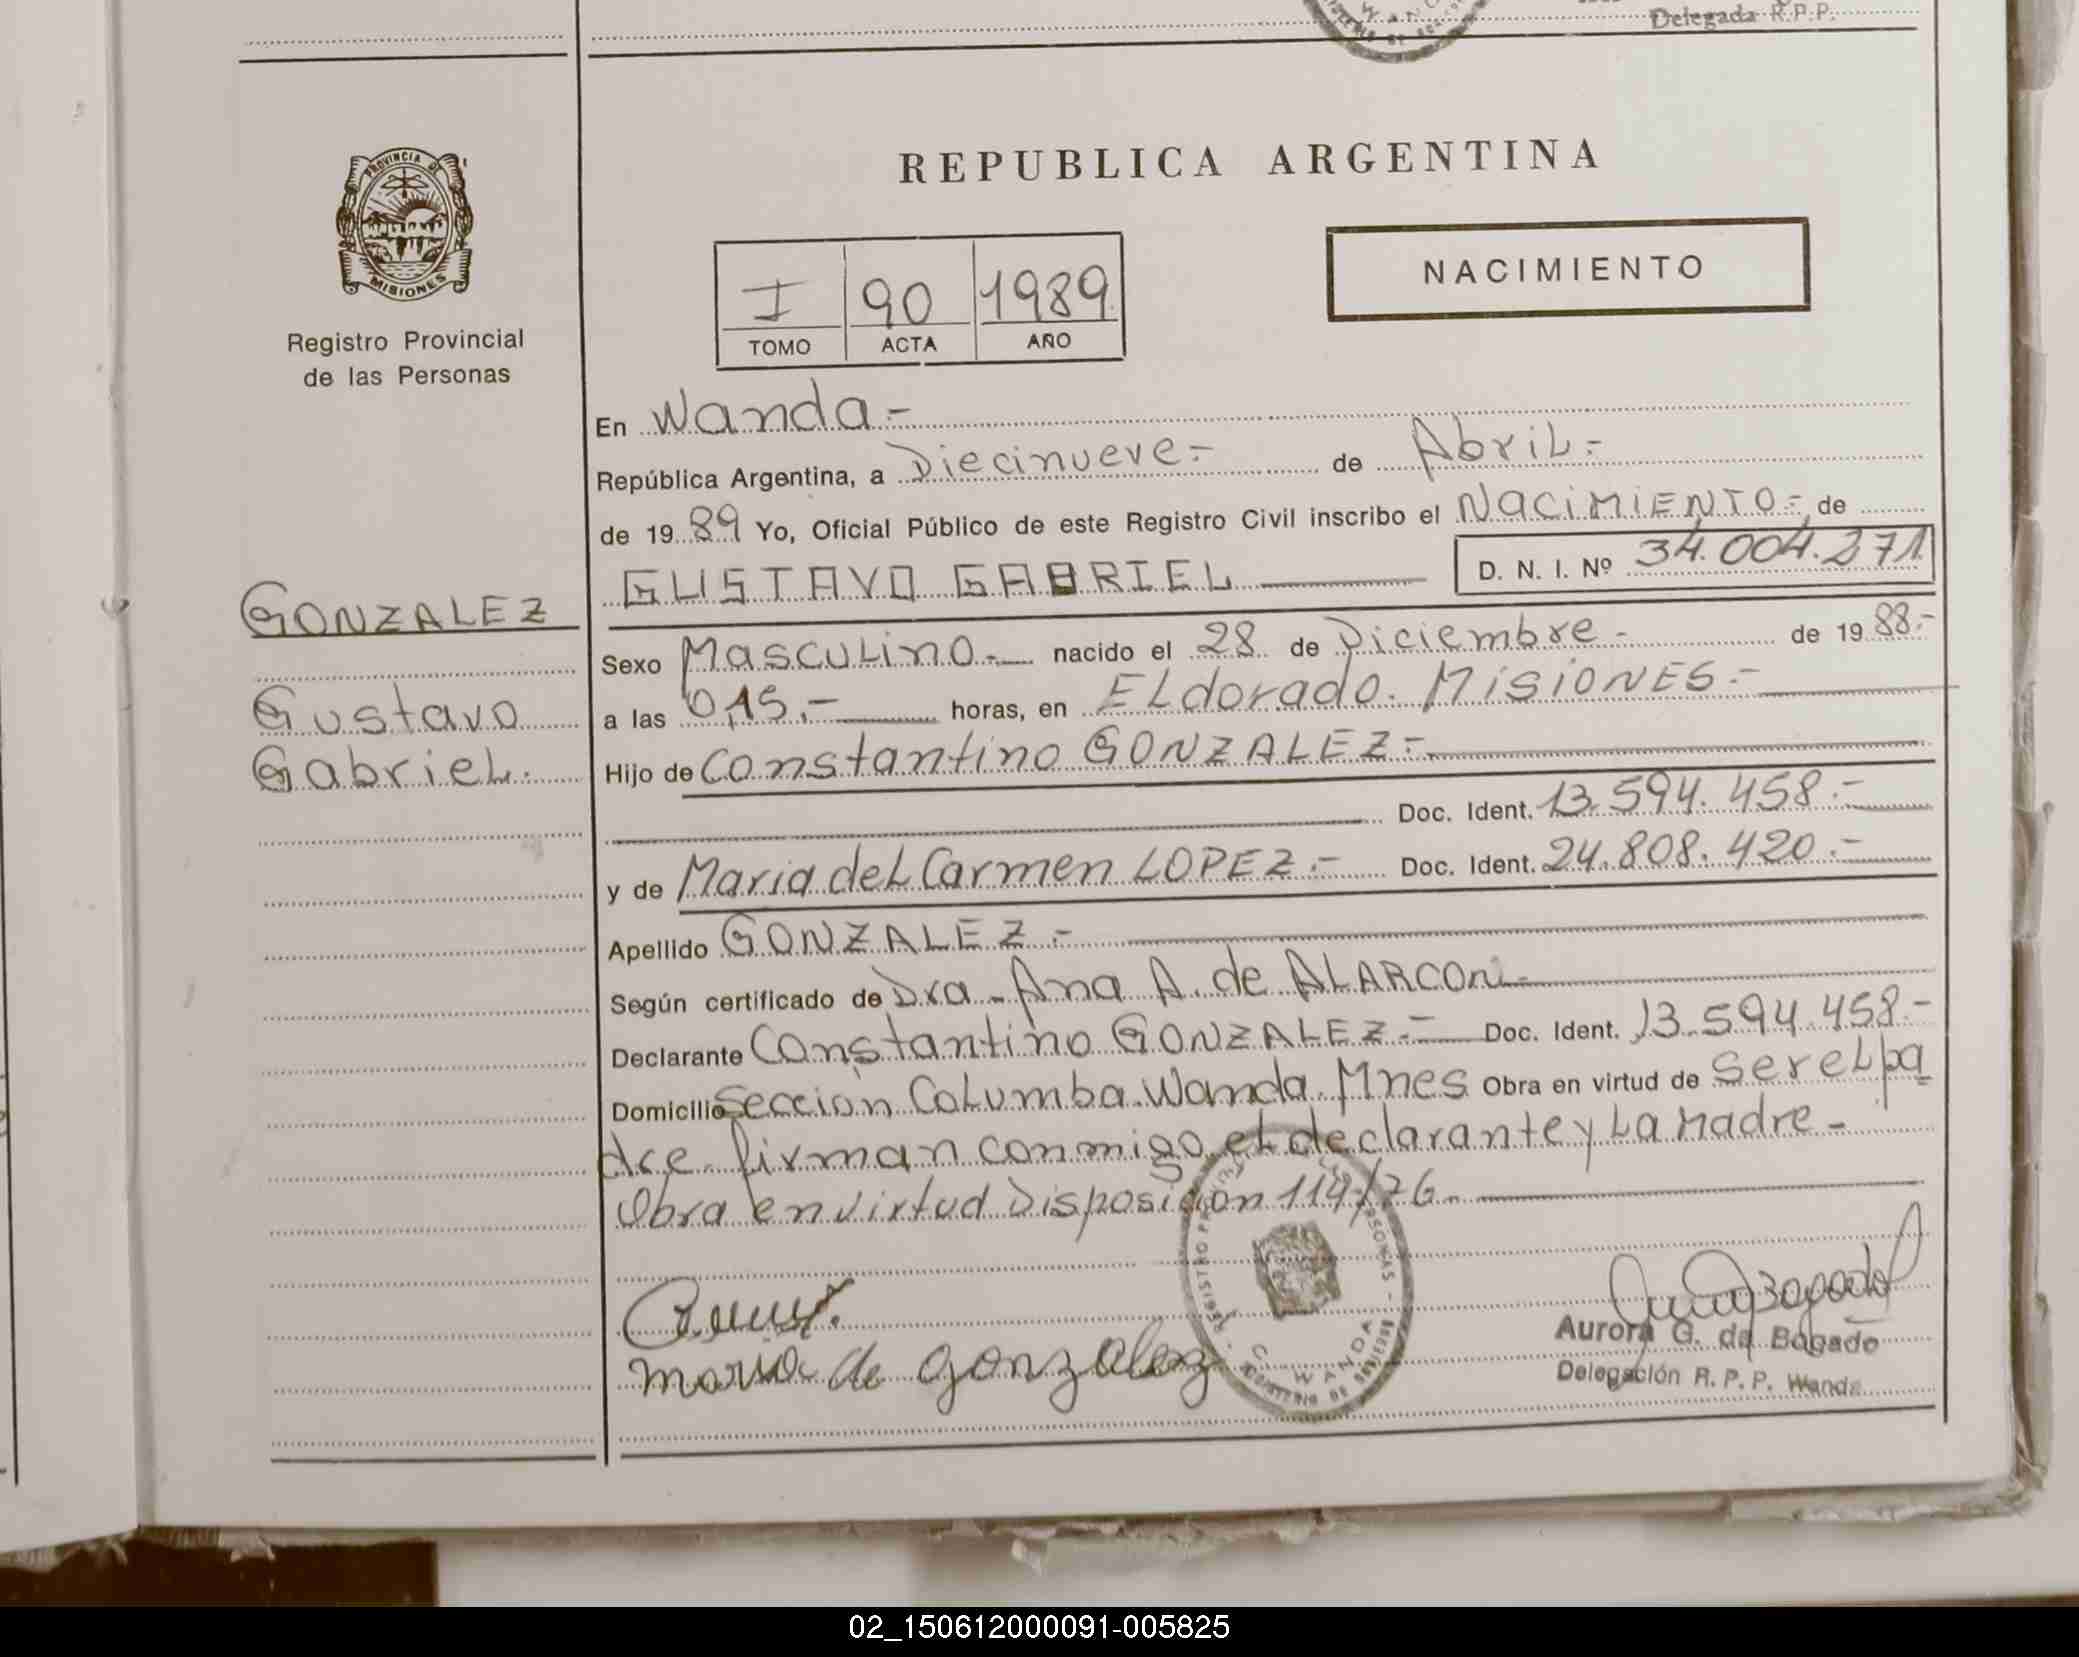 Delegada R.P.P.
PROVINCIA DE
MISIONES
Registro Provincial
de las Personas
REPUBLICA ARGENTINA
NACIMIENTO
I 90 1989
TOMO ACTA AÑO
En Wanda.-
República Argentina, a Diecinueve.- de Abril.-
de 19 89 Yo, Oficial Público de este Registro Civil inscribo el NACIMIENTO.- de
GUSTAVO GABRIEL D. N. I. Nº 34.004.271
GONZALEZ
Gustavo
Gabriel.
Sexo Masculino.- nacido el 28 de Diciembre.- de 19 88.-
a las 0,15.- horas, en Eldorado. Misiones.-
Hijo de Constantino GONZALEZ.-
Doc. Ident. 13.594.458.-
y de Maria del Carmen LOPEZ.- Doc. Ident. 24.808.420.-
Apellido GONZALEZ.-
Según certificado de Dra. Ana A. de ALARCON.-
Declarante Constantino GONZALEZ.- Doc. Ident. 13.594.458.-
Domicilio Sección Columba. Wanda. Mnes Obra en virtud de ser el pa
dre firman conmigo el declarante y la madre.-
Obra en virtud Disposicion 114/76.-
maria de gonzalez
Aurora G. de Bogado
Delegación R. P. P. Wanda
WANDA
02_150612000091-005825